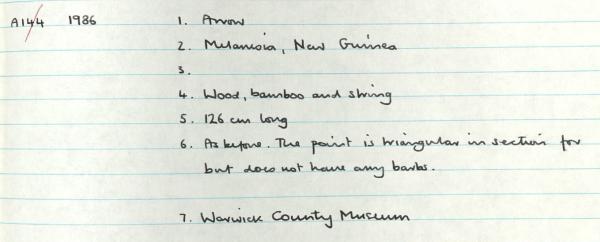 A144 1986 1. Arrow
2. Melanesia, New Guinea
3.
4. Wood, bamboo and string
5. 126 cm long
6. As before. The point is triangular in section for
but does not have any barbs.
7. Warwick County Museum